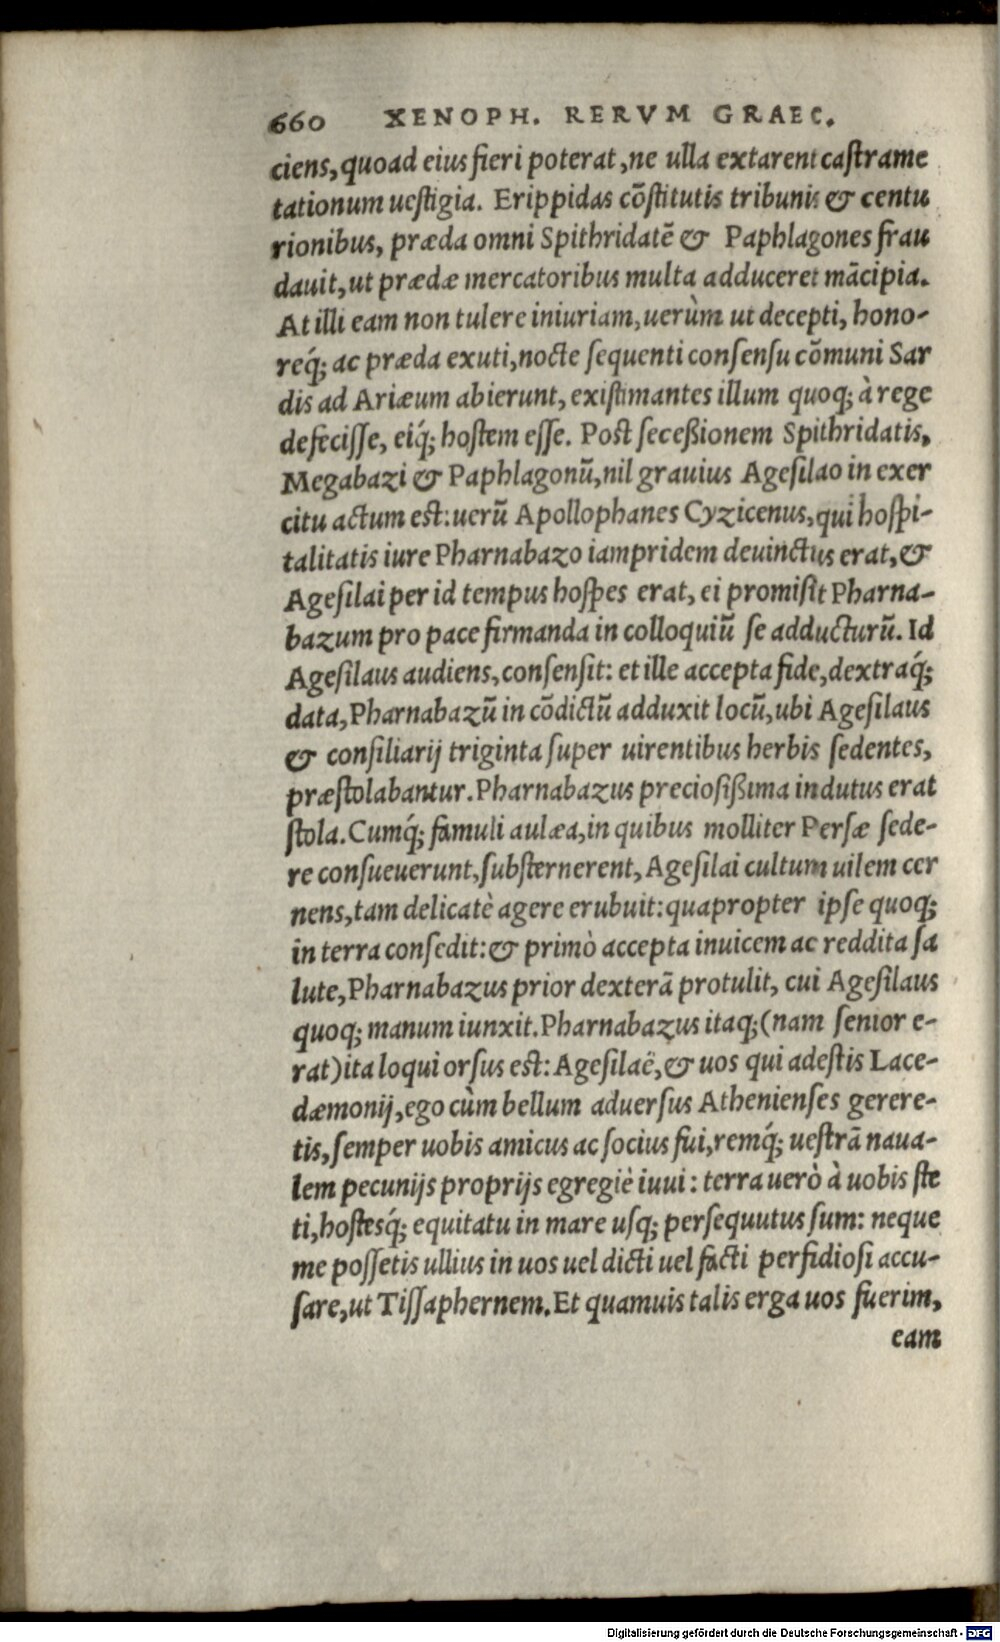 660 XENOPH. RERVM GRAEC.
ciens, quoad eius fieri poterat, ne ulla extarent castrame
tationum uestigia. Erippidas cõstitutis tribunis & centu
rionibus, præda omni Spithridatẽ & Paphlagones frau
dauit, ut prædæ mercatoribus multa adduceret mãcipia.
At illi eam non tulere iniuriam, uerùm ut decepti, hono-
req́; ac præda exuti, nocte sequenti consensu cõmuni Sar
dis ad Ariæum abierunt, existimantes illum quoq; à rege
defecisse, eiq́; hostem esse. Post seceßionem Spithridatis,
Megabazi & Paphlagonũ, nil grauius Agesilao in exer
citu actum est: uerũ Apollophanes Cyzicenus, qui hospi-
talitatis iure Pharnabazo iampridem deuinctus erat, &
Agesilai per id tempus hospes erat, ei promisit Pharna-
bazum pro pace firmanda in colloquiũ se adducturũ. Id
Agesilaus audiens, consensit: et ille accepta fide, dextraq́;
data, Pharnabazũ in cõdictũ adduxit locũ, ubi Agesilaus
& consiliarij triginta super uirentibus herbis sedentes,
præstolabantur. Pharnabazus preciosißima indutus erat
stola. Cumq́; famuli aulæa, in quibus molliter Persæ sede-
re consueuerunt, substernerent, Agesilai cultum uilem cer
nens, tam delicatè agere erubuit: quapropter ipse quoq;
in terra consedit: & primò accepta inuicem ac reddita sa
lute, Pharnabazus prior dexterã protulit, cui Agesilaus
quoq; manum iunxit. Pharnabazus itaq; (nam senior e-
rat) ita loqui orsus est: Agesilaë, & uos qui adestis Lace-
dæmonij, ego cùm bellum aduersus Athenienses gerere-
tis, semper uobis amicus ac socius fui, remq́; uestrã naua-
lem pecunijs proprijs egregiè iuui: terra uerò à uobis ste
ti, hostesq́; equitatu in mare usq; persequutus sum: neque
me possetis ullius in uos uel dicti uel facti perfidiosi accu-
sare, ut Tissaphernem. Et quamuis talis erga uos fuerim,
eam
Digitalisierung gefördert durch die Deutsche Forschungsgemeinschaft - DFG